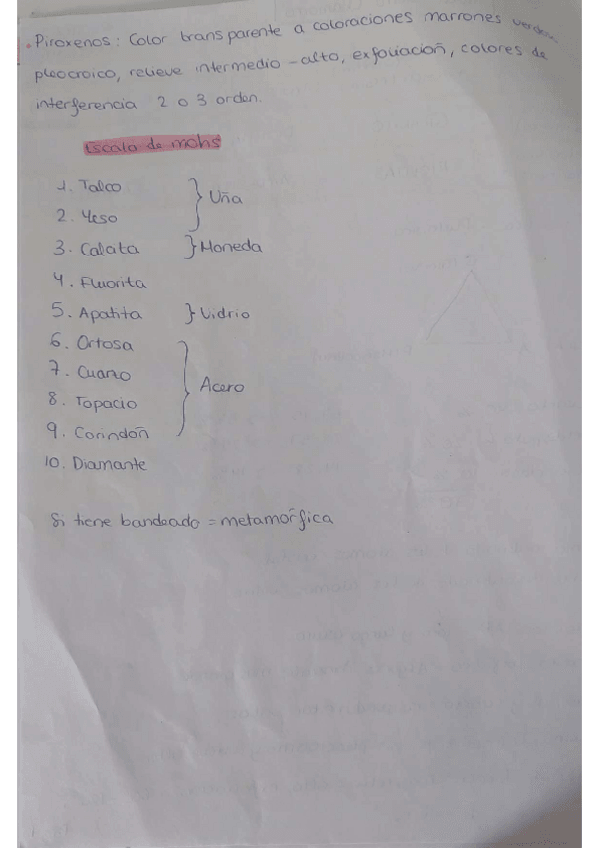 • Piroxenos: Color transparente a coloraciones marrones verdes
pleocroico, relieve intermedio-alto, exfoliación, colores de
interferencia 2 o 3 orden.
Escala de mohs
1. Talco
2. Yeso
} Uña
3. Calcita } Moneda
4. Fluorita
5. Apatita } Vidrio
6. Ortosa
7. Cuarzo
8. Topacio
9. Corindón
} Acero
10. Diamante
Si tiene bandeado = metamórfica